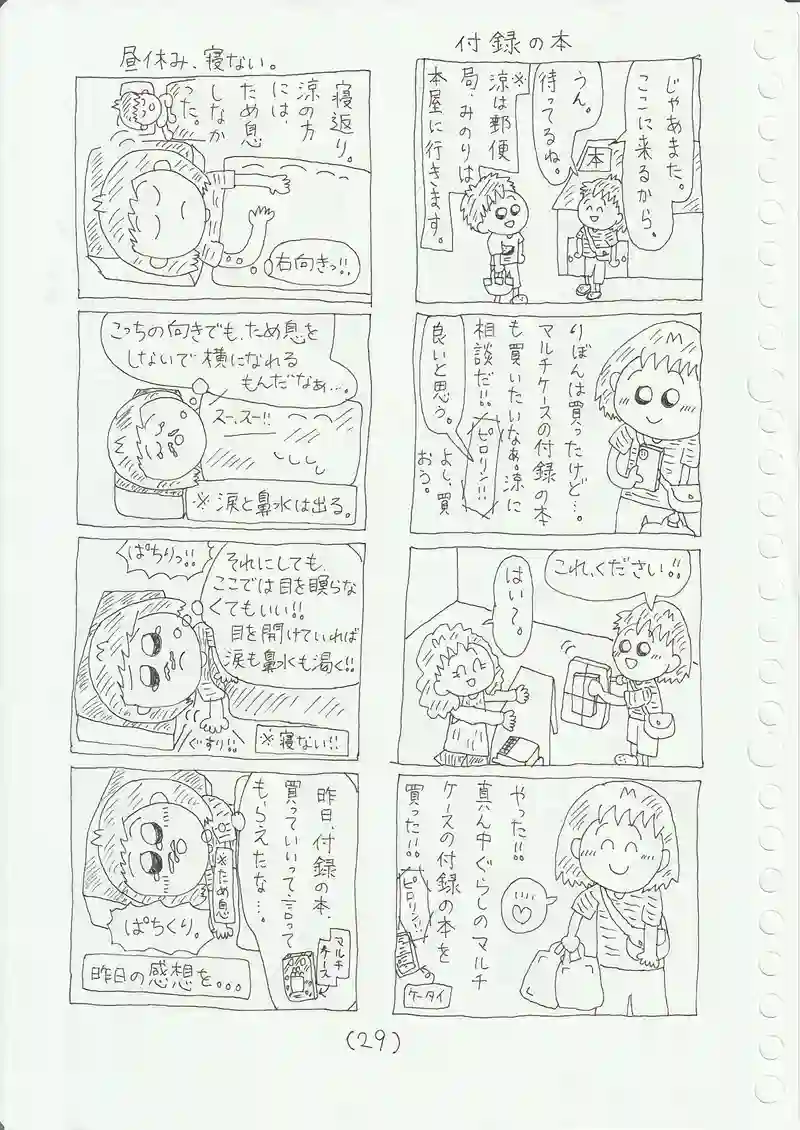 付録の本
じゃあまた。
ここに来るから。
本
うん。
待ってるね。
※
涼は郵便
局、みのりは
本屋に行きます。
りぼんは買ったけど…。
マルチケースの付録の本
も買いたいなぁ。涼に
相談だ!!
ピロリン!!
良いと思う。
よし、買
おう。
これ、ください!!
はい〜。
やった!!
真ん中ぐらしのマルチ
ケースの付録の本を
買った!!
ピロリン!!
ケータイ
昼休み、寝ない。
寝返り。
涼の方
には、
ため息
しなか
った。
右向きっ!!
こっちの向きでも、ため息を
しないで横になれる
もんだなぁ…。
スー、スー!!
※涙と鼻水は出る。
ぱちりっ!!
それにしても、
ここでは目を瞑らな
くてもいい!!
目を開けていれば
涙も鼻水も渇く!!
ぐすり!!
※寝ない!!
昨日、付録の本、
買っていいって言って
もらえたな…。
マルチ
ケース
※ため息
ぱちくり。
昨日の感想を。。。
(29)